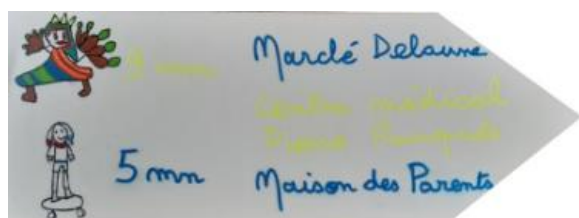 mn Marché Delaune
Centre médical
Pierre
5 mn Maison des Parents